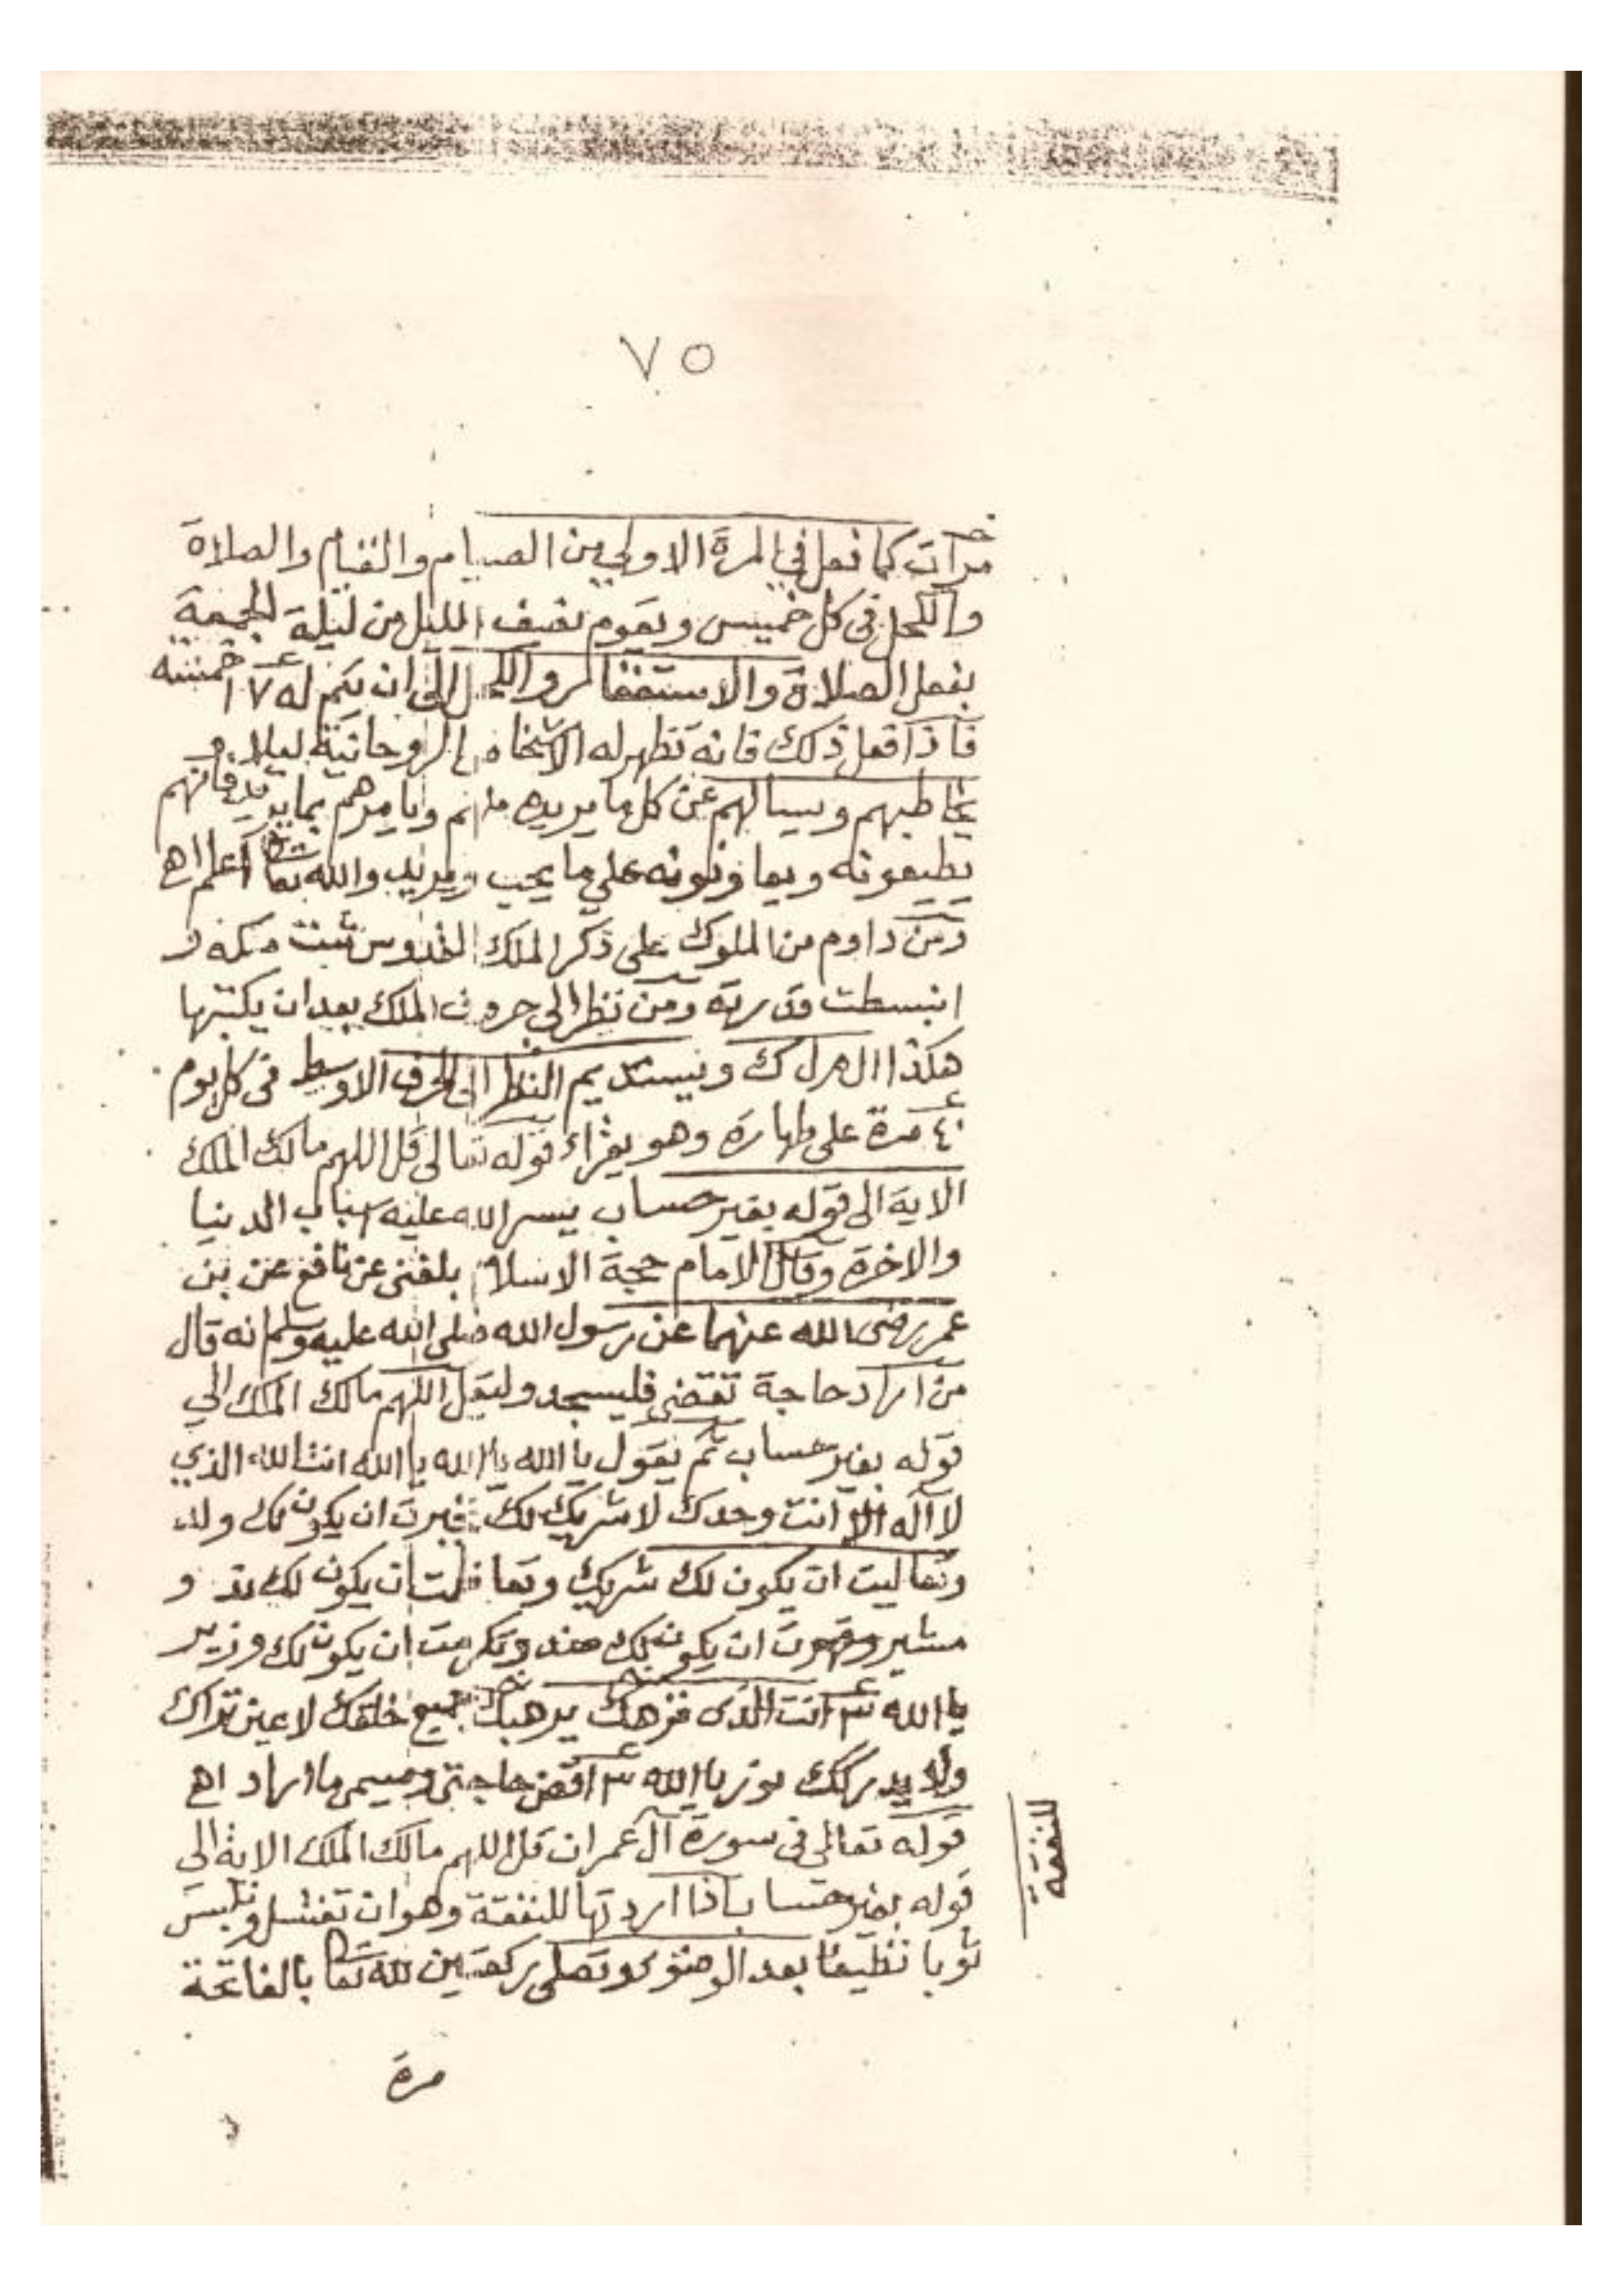 ٧٥
مرات كما فعل في المرة الاولي من الصيام والقيام والصلاة
والكحل في كل خميس ويقوم نصف الليل من ليلة الجمعة
بفعل الصلاة والاستغفار والكحل الى ان يتم له ١٧ خمسه
فاذا فعل ذلك فانه تظهر له الاشخاص الروحانية ليلا و
يخاطبهم ويسالهم عن كل ما يريده منهم ويامرهم بما يريد فانهم
يطيعونه ويعاونونه علي ما يحب ويريد والله تعا اعلم اهـ
ومن داوم من الملوك على ذكر الملك القدوس ثبت ملكه و
انبسطت قدرته ومن نظر الي حروف الملك بعد ان يكتبها
هكذا ال م ل ك ويستديم النظر الى الحرف الاوسط في كل يوم
٤٠ مرة على طهارة وهو يقراء قوله تعالى قل اللهم مالك الملك
الاية الى قوله بغير حساب يسر الله عليه اسباب الدنيا
والاخرة وقال الامام حجة الاسلام بلغني عن نافع عن بن
عمر رضى الله عنهما عن رسول الله صلى الله عليه وسلم انه قال
من اراد حاجة تقضى فليسجد وليقل اللهم مالك الملك الي
قوله بغير حساب ثم يقول يا الله يا الله يا الله انت الله الذي
لا اله الا انت وحدك لا شريك لك تجبرت ان يكون لك ولد
وتعاليت ان يكون لك شريك وتعاظمت ان يكون لك ند و
مشير وقهرت ان يكون لك ضد وتكرمت ان يكون لك وزير
يا الله ٣ انت الذى جميع خلقك لا عين تراك
ولا يدركك نور يا الله ٣ اقض حاجتي ويسمى ما اراد اهـ
قوله تعالي في سورة آل عمران قل اللهم مالك الملك الاية الي
قوله بغير حساب اذا اردتها للنفقة وهو ان تغتسل وتلبس
ثوبا نظيفا بعد الوضوء وتصلى ركعتين لله تعا بالفاتحة
للنفقة
مرة